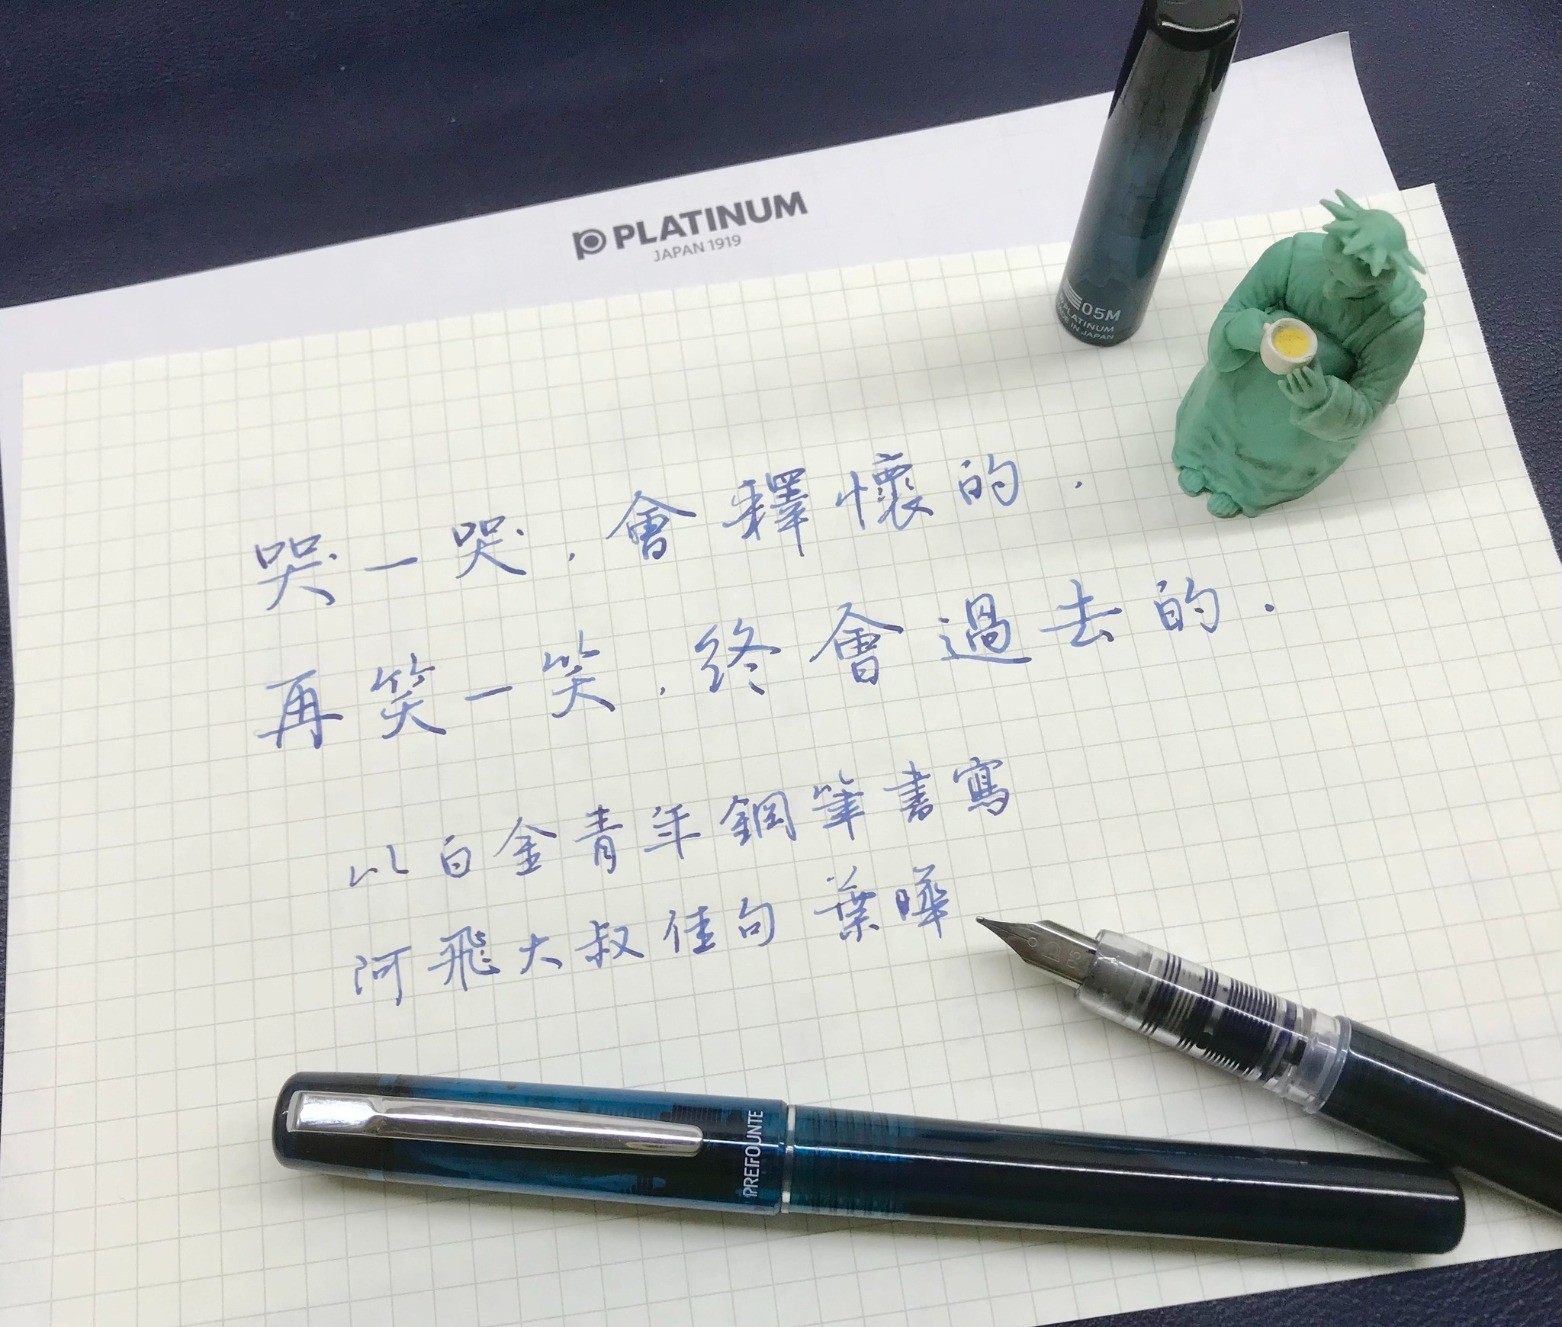 PLATINUM
JAPAN 1919
05M
PLATINUM
MADE IN JAPAN
哭一哭，會釋懷的．
再笑一笑，終會過去的．
以白金青年鋼筆書寫
阿飛大叔佳句 葉曄
PREFOUNTE